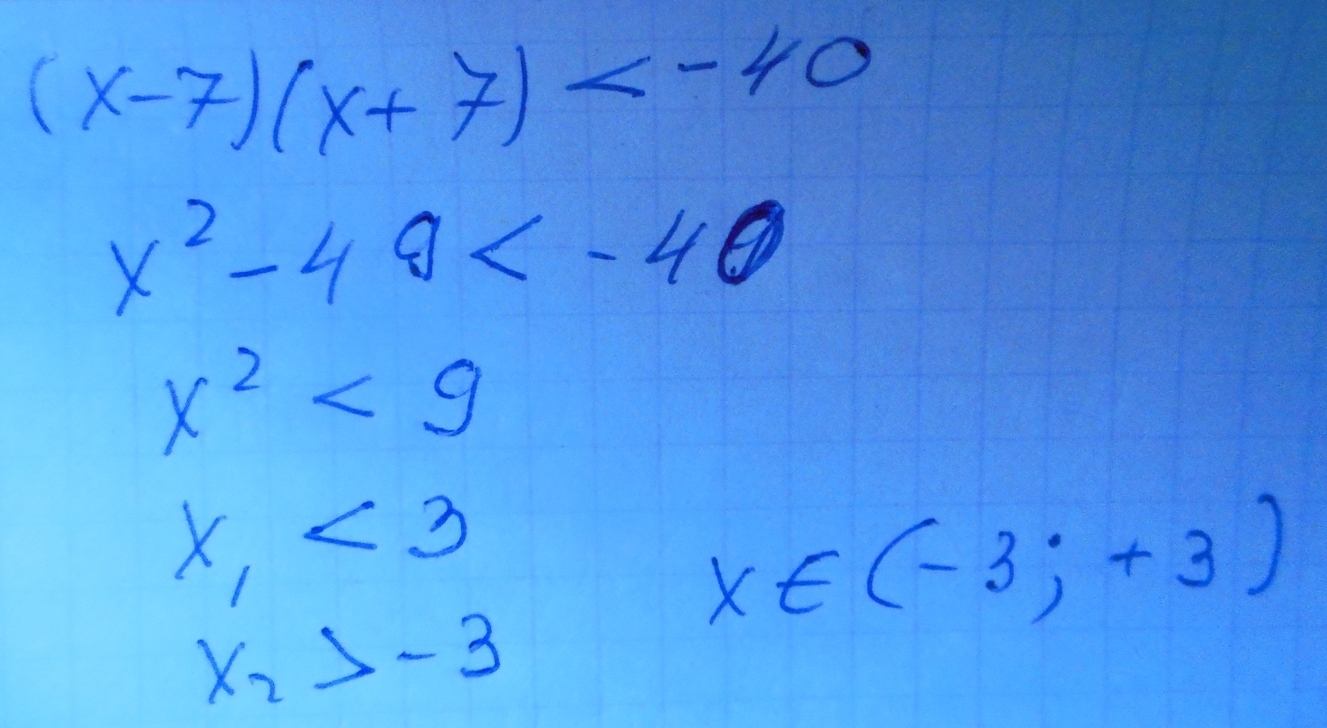 (x-7)(x+7) < -40
x² - 49 < -40
x² < 9
x₁ < 3
x ∈ (-3; +3)
x₂ > -3